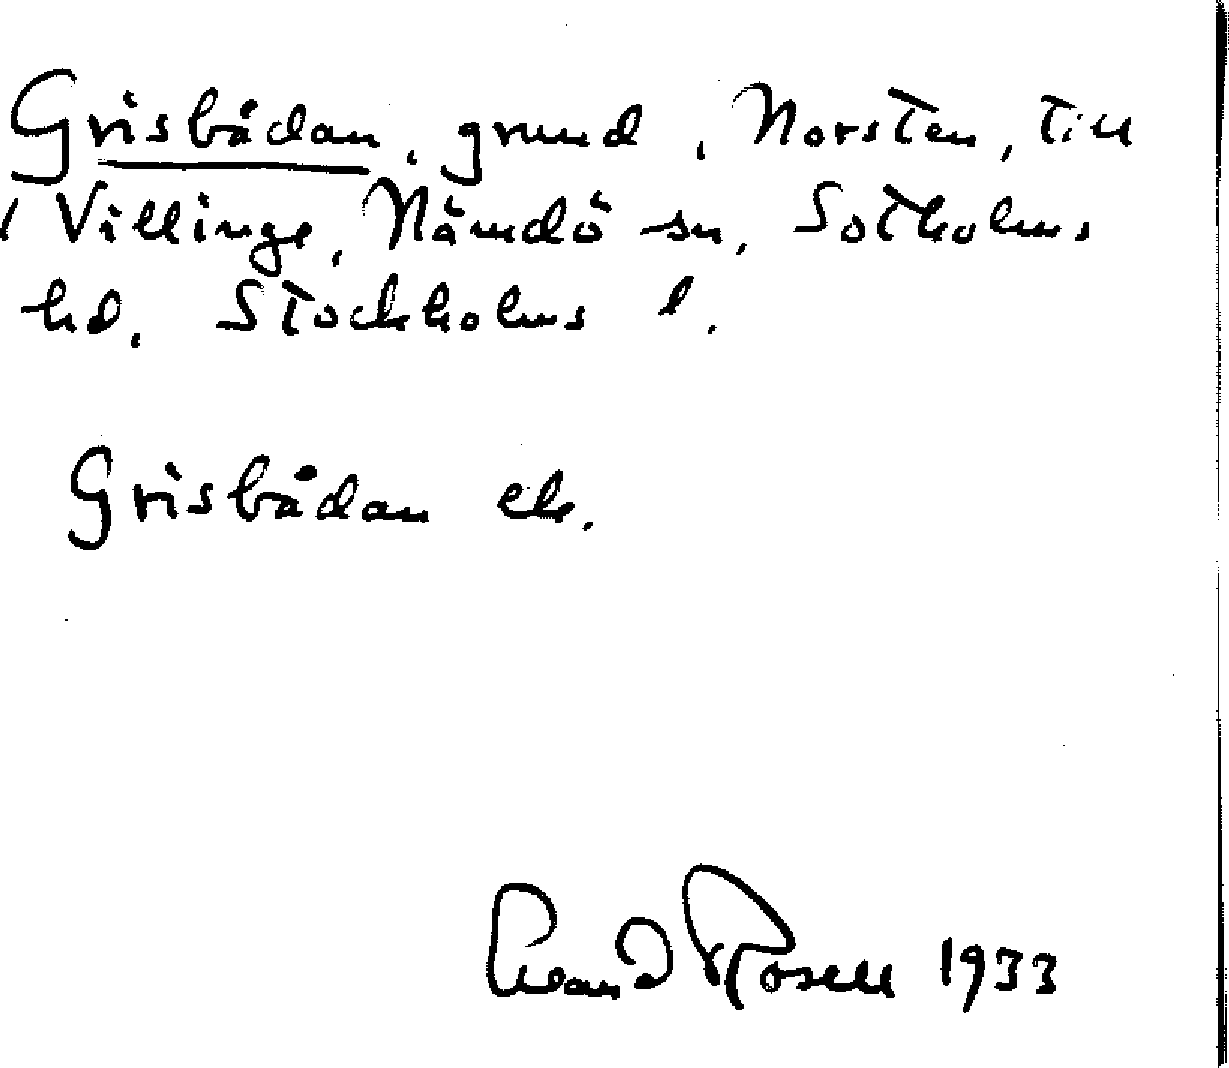 Grisbådan, grund, Norsten, till
Villinge, Nämdö sn, Sotholms
hd. Stockholms l.
Grisbådan ek.
Rosell 1933